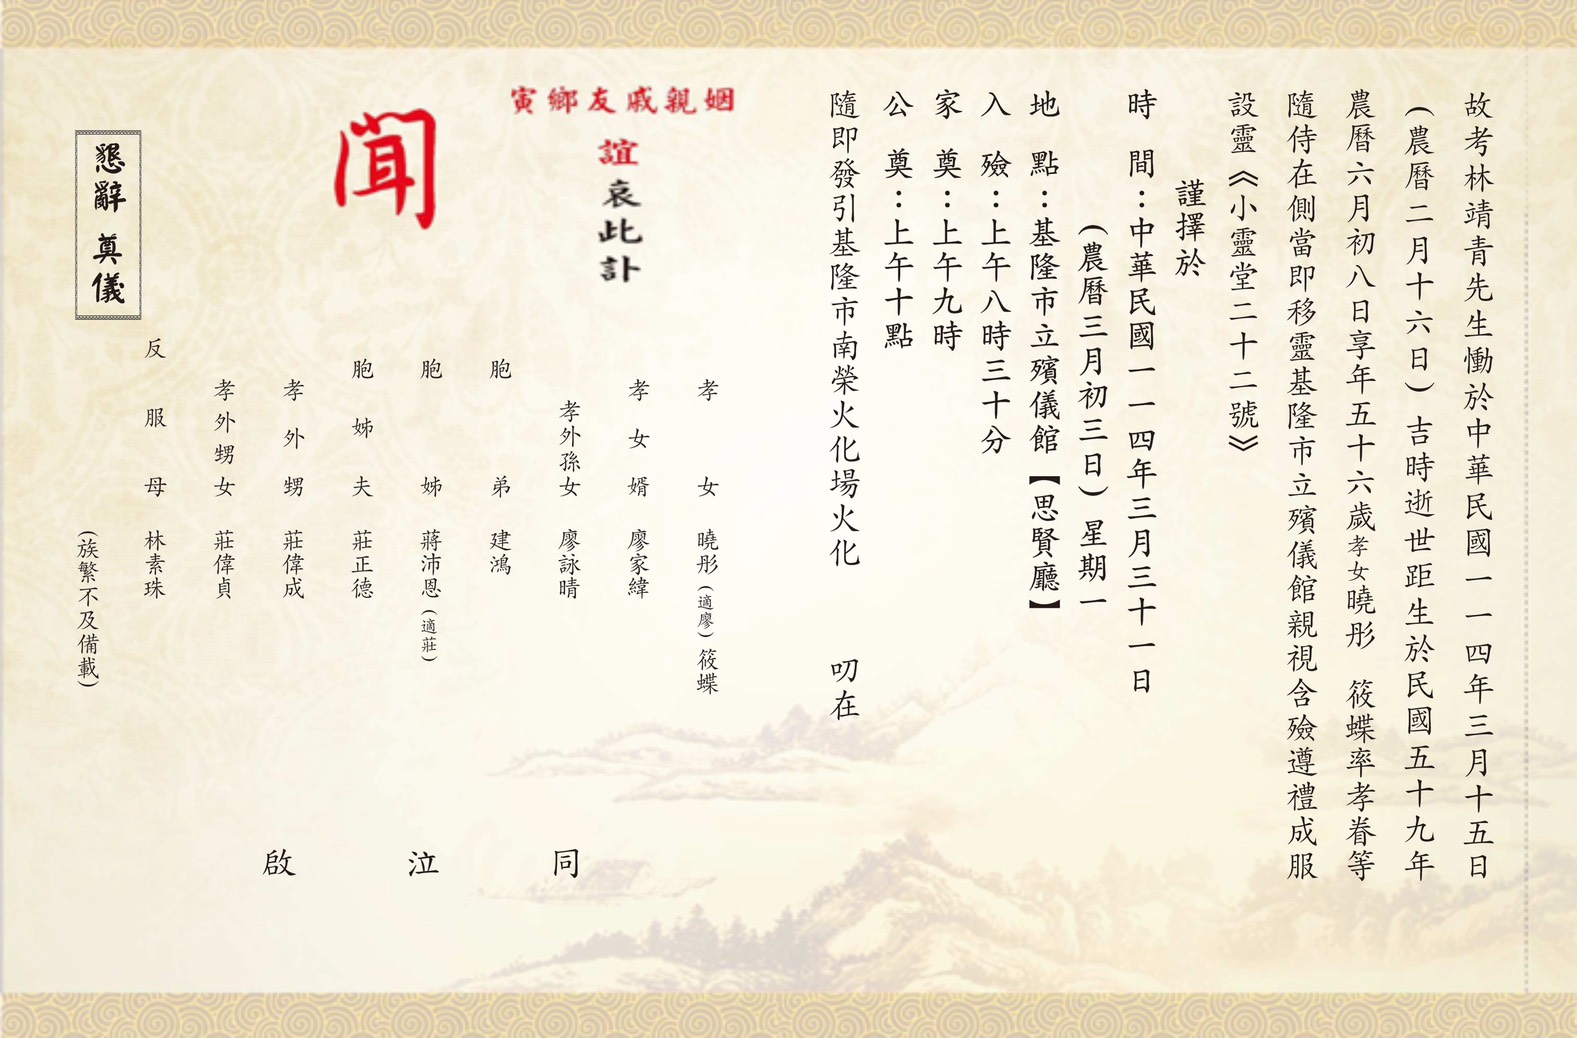 故考林靖青先生慟於中華民國一一四年三月十五日
(農曆二月十六日)吉時逝世距生於民國五十九年
農曆六月初八日享年五十六歲孝女曉彤 筱蝶率孝眷等
隨侍在側當即移靈基隆市立殯儀館親視含殮遵禮成服
設靈《小靈堂二十二號》
謹擇於
時 間:中華民國一一四年三月三十一日
(農曆三月初三日)星期一
地 點:基隆市立殯儀館【思賢廳】
入 殮:上午八時三十分
家 奠:上午九時
公 奠:上午十點
隨即發引基隆市南榮火化場火化 叨在
姻親戚友鄉寅
誼哀此訃
聞
孝女 曉彤(適廖)筱蝶
孝女婿 廖家緯
孝外孫女 廖詠晴
胞弟 建鴻
胞姊 蔣沛恩(適莊)
胞姊夫 莊正德
孝外甥 莊偉成
孝外甥女 莊偉貞
反服母 林素珠
(族繁不及備載)
同泣啟
懇辭 奠儀